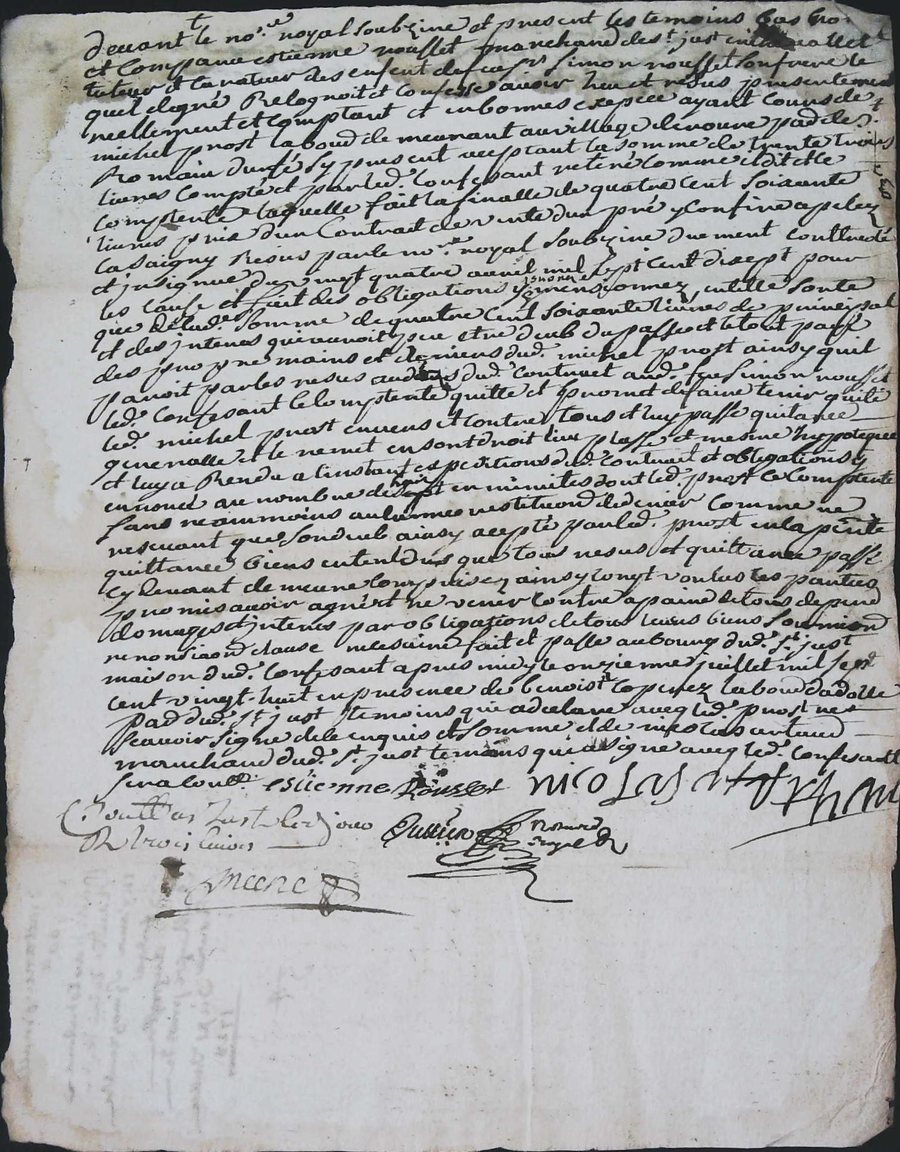 devant le no.re royal soubzine et present les temoins bas no
et Comparu estienne rousset marchand de st just en
tuteur et curateur des enfent de feu sr simon rousset son frere le
quel de gré Relognoit et confesse avoir heu et resus presentement
reellement et comptant et en bonnes espece ayant cours de
michel prost laboud demeurant au village de noure pad de st
Romain durfé sy present aceptant la somme de trente trois
livres compté et par led. Confessant retiré Comme a dit elle
Comptente laquelle fait la finalle de quatre cent soisante
livres prix d'un Contrat de vente d'un pré y Confiné apelez
la saigny Resus par le no.re royal soubzine duement conttrollé
et insignué du vingt quatre avril mil sept cent disept pour
les cause et fait des obligations y mensionnez, en telle sorte
que de lad. somme de quatre cent soisante livres de principal
et des interes quil auroit peu etre deub du passe et le tout payé
des propre mains et deniers dud. michel prost ainsy quil
paroit par les resus au das dud. Contract aud. feu simon rousset
led. Confessant le comptente quitte et promet de faire tenir quite
led. michel prost envers et contre tous et luy passe quitance
generalle et le remet en son droit lieu plasse et mesme hypoteque
et luy a Rendu a linstant espeditions dud. Contract et obligations y
enoncé au nombre de sept en minites dont led. prost ce Comptente
sans neammoins aulcunes restitutions denier comme ne
resevant que son deub ainsy acepté par led. prost en la pnte
quittance biens entendus que tous resus et quittance passé
cy devant demeure Comprisez ainsy lont voulus les parties
promis avoir agré et ne venir Contre a paine de tous depend
domages et interes par obligations de tous leurs biens soumission
renonsiaon clause nesesaire fait et passe au bourg dud. st just
maison dud. Confessant apres midy le onzienne juillet mil sept
cent vingt huit en presence de benoist laboud dadolle
pad dud. st just temoins qui a declare avecq led. prost ne
seavoir signe de ce enquis et somme et de nicolas artaud
marchand dud. st just temoins qui a signe avecq led. Confessant
sera Coull. estienne Rousset nicolas artaud
Coull a st just led jour
R trois livres